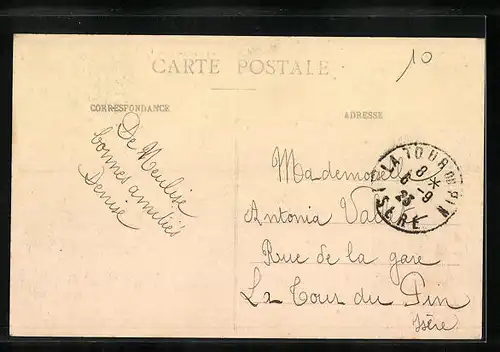 10
CARTE POSTALE
CORRESPONDANCE
ADRESSE
De Meulise
bonnes amitiés
Denise
Mademoiselle
Antonia
Rue de la gare
La Tour du Pin
Isère
LA TOUR DU PIN
8 *
6 - 9
23
ISÈRE